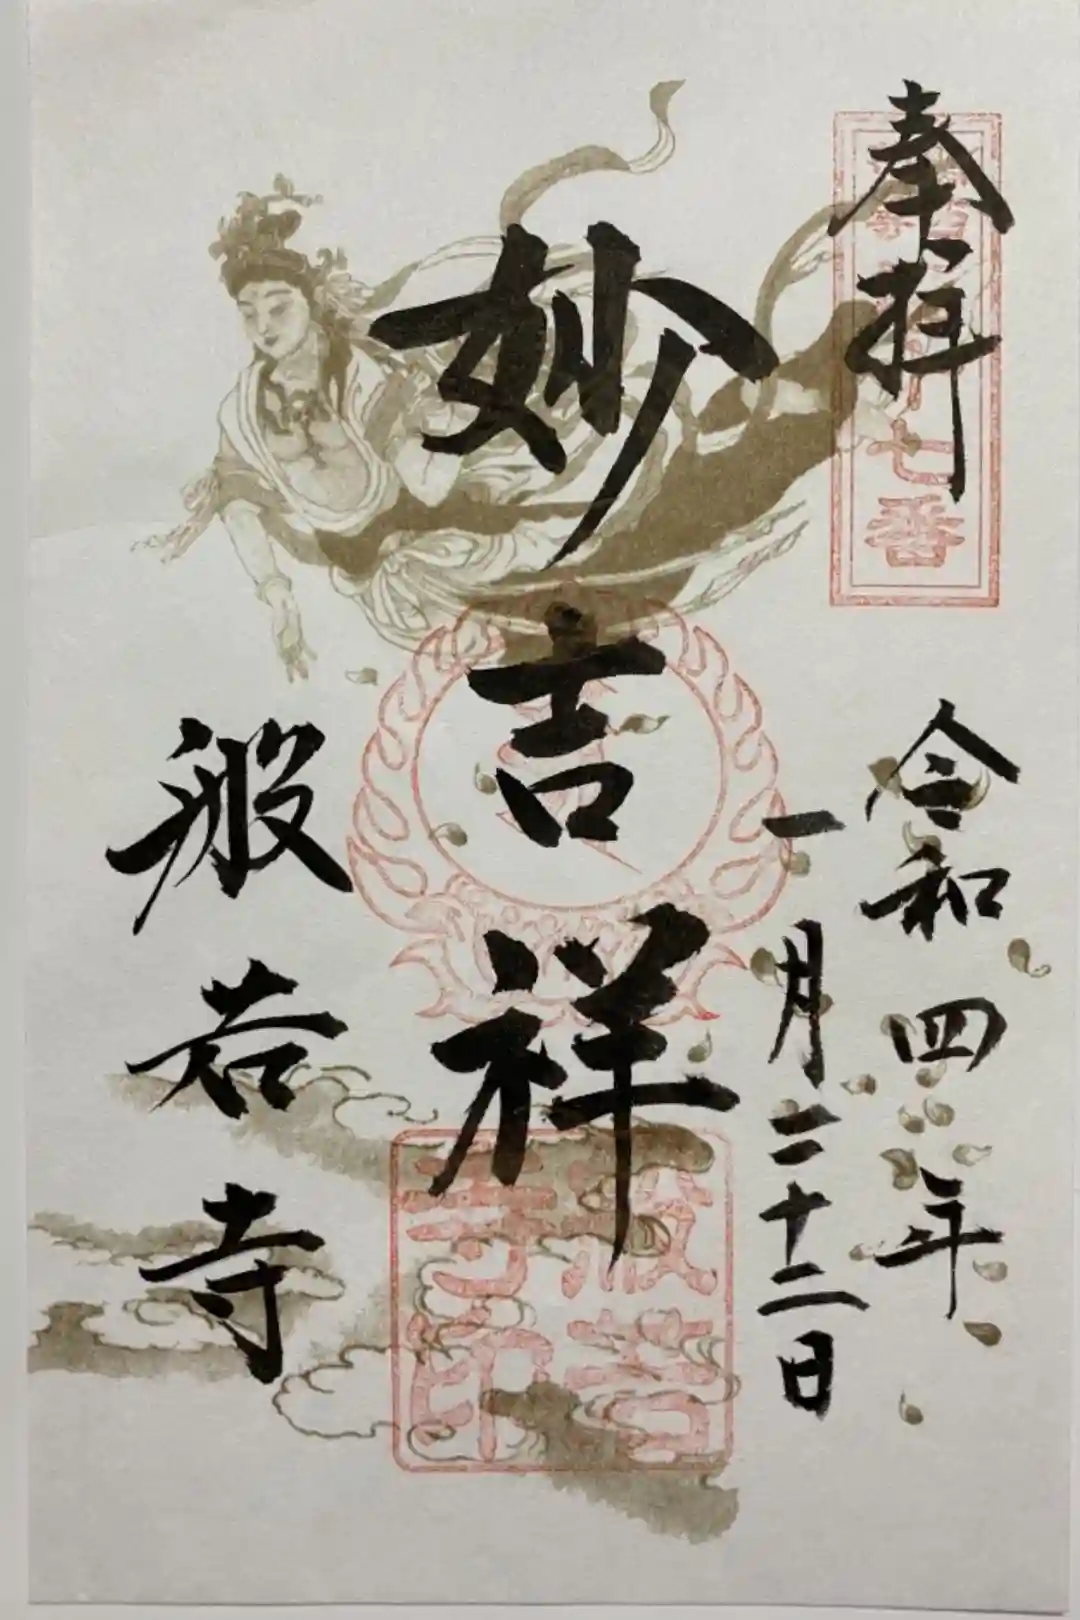 奉拝
七番
令和四年
一月二十二日
妙吉祥
般若
寺印
般若寺